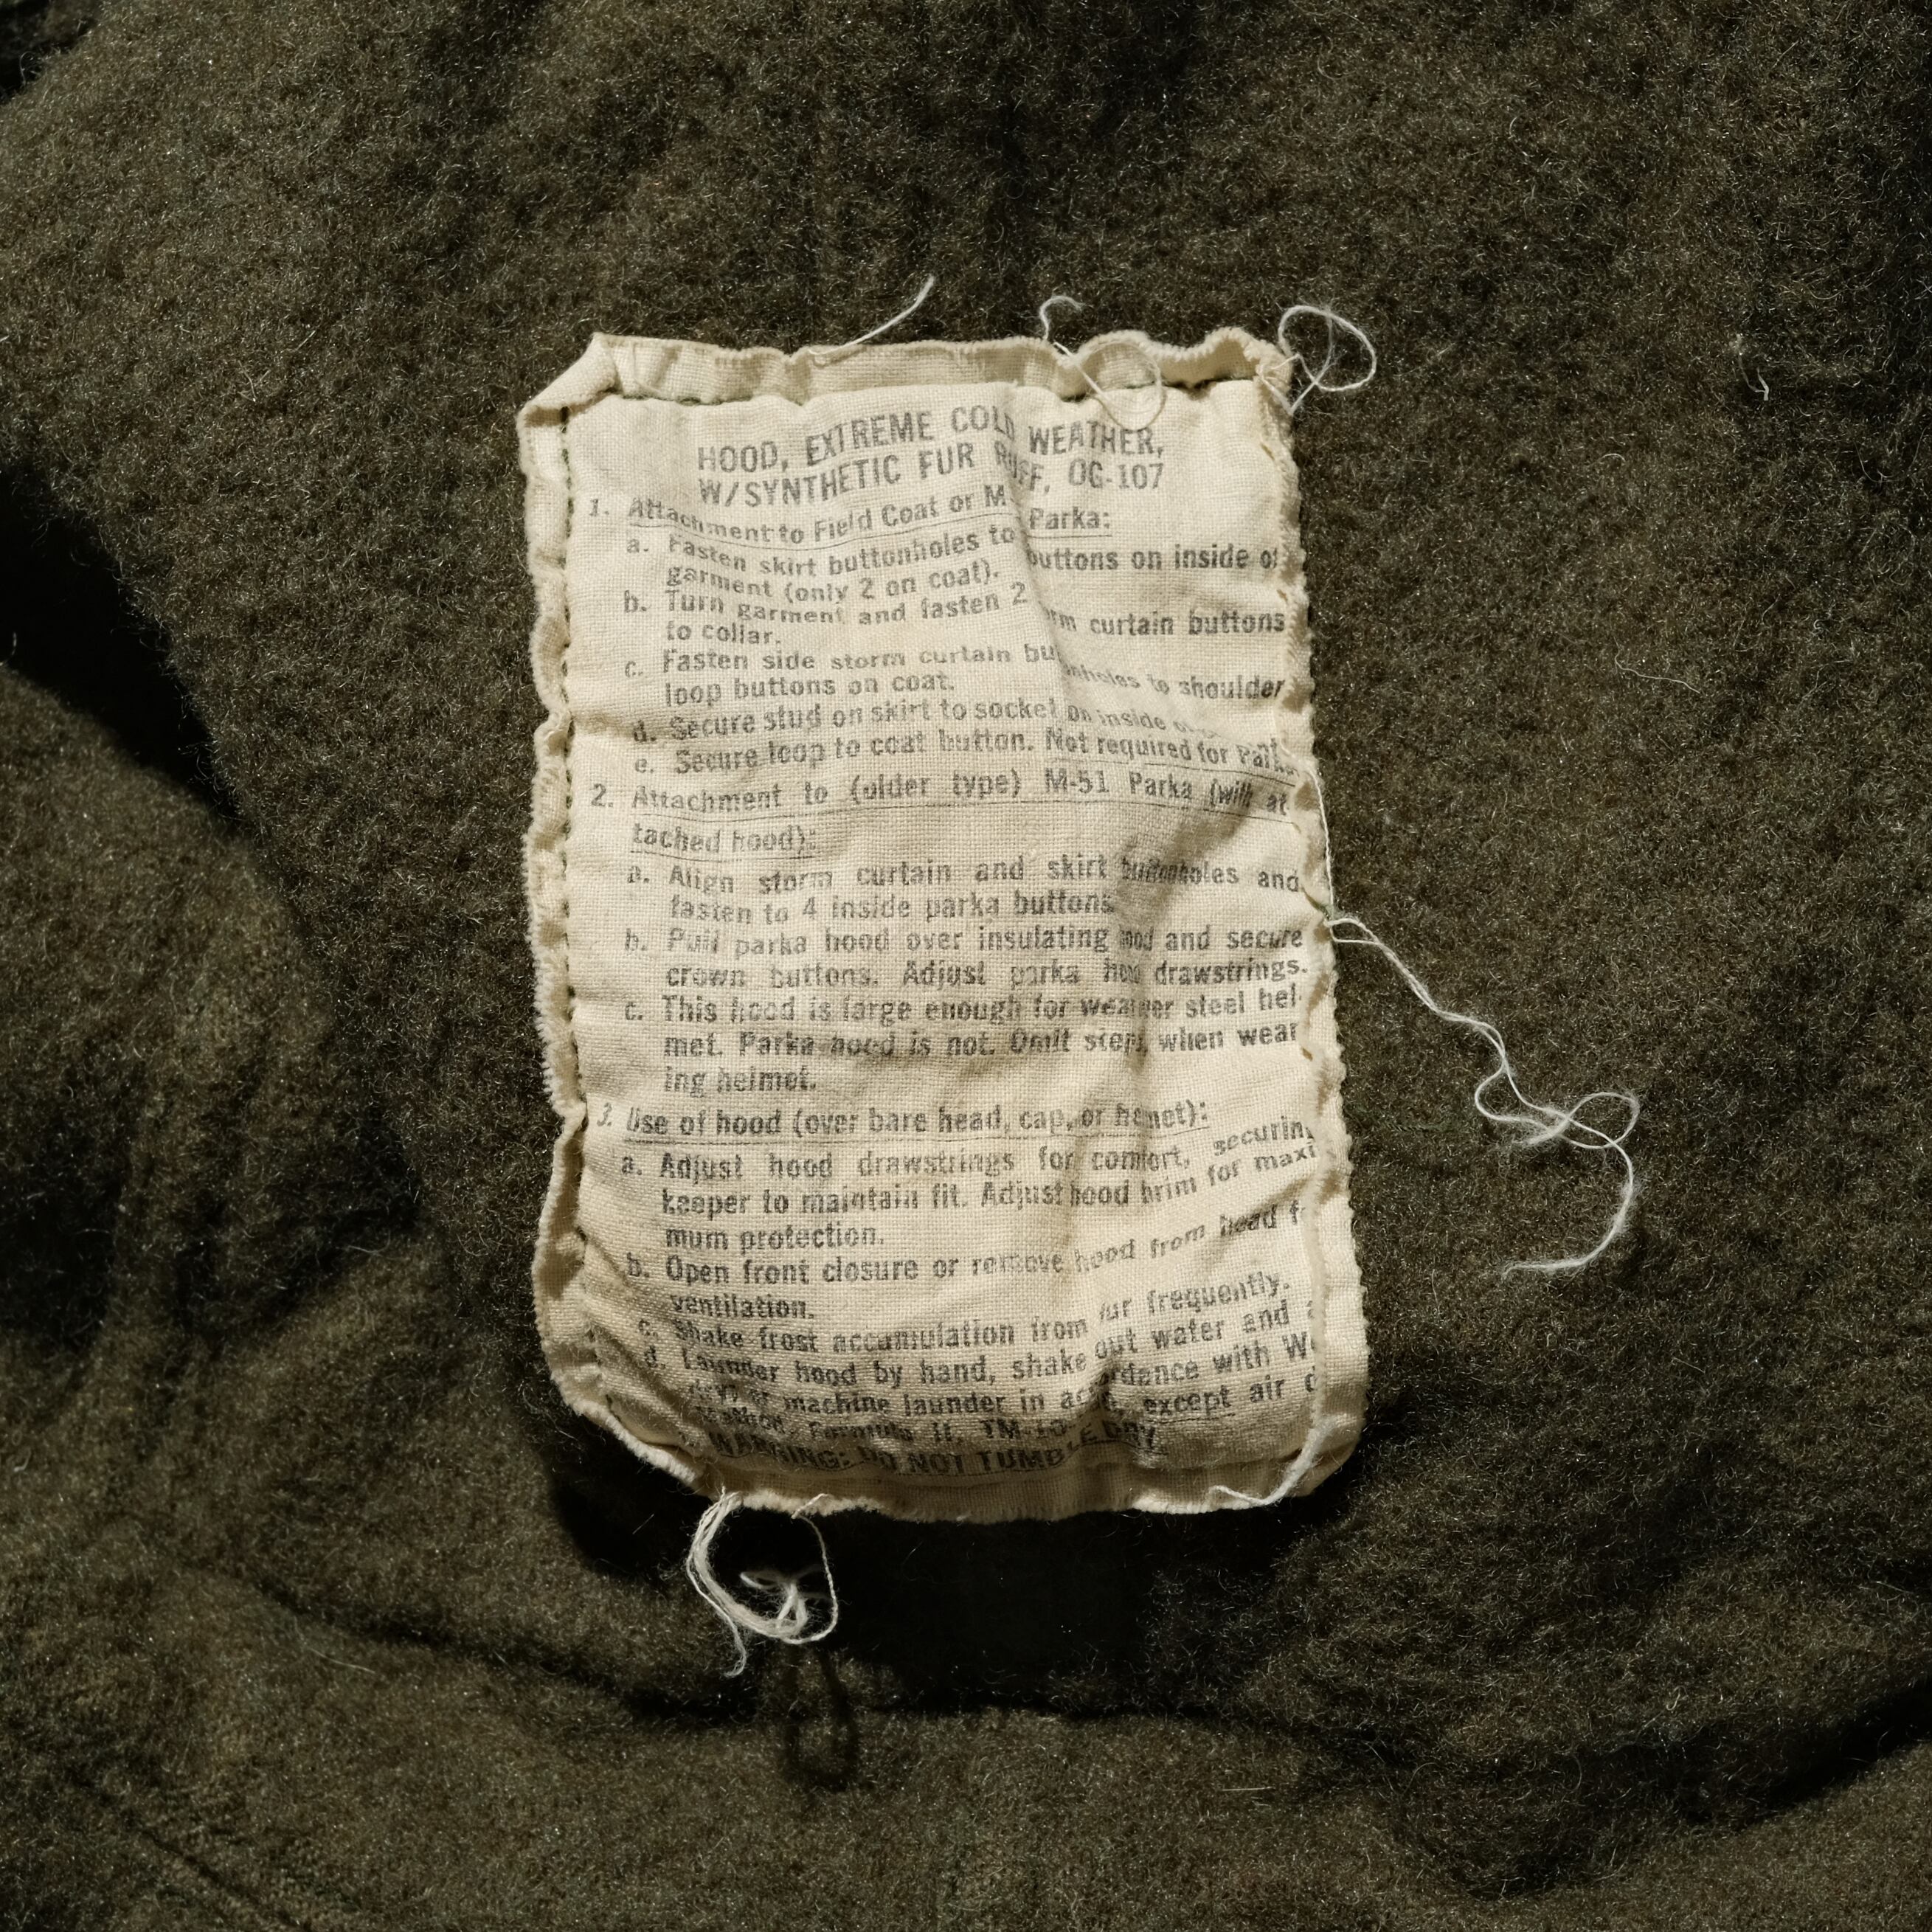 HOOD, EXTREME COLD WEATHER,
W/SYNTHETIC FUR RUFF, OG-107
1. Attachment to Field Coat or M Parka:
a. Fasten skirt buttonholes to buttons on inside of
garment (only 2 on coat).
b. Turn garment and fasten 2 curtain buttons
to collar.
c. Fasten side storm curtain buttonholes to shoulder
loop buttons on coat.
d. Secure stud on skirt to socket on inside
e. Secure loop to coat button. Not required for Parka
2. Attachment to (older type) M-51 Parka (with at
tached hood):
a. Align storm curtain and skirt buttonholes and
fasten to 4 inside parka buttons
b. Pull parka hood over insulating hood and secure
crown buttons. Adjust parka hood drawstrings.
c. This hood is large enough for wear over steel hel-
met. Parka hood is not. Omit step when wear
ing helmet.
3. Use of hood (over bare head, cap, or helmet):
a. Adjust hood drawstrings for comfort, securing
keeper to maintain fit. Adjust hood brim for maxi
mum protection.
b. Open front closure or remove hood from head
ventilation.
c. Shake frost accumulation from fur frequently.
d. Launder hood by hand, shake out water and
machine launder in accordance with
Method, Formula II, TM-10- except air
WARNING: DO NOT TUMBLE DRY